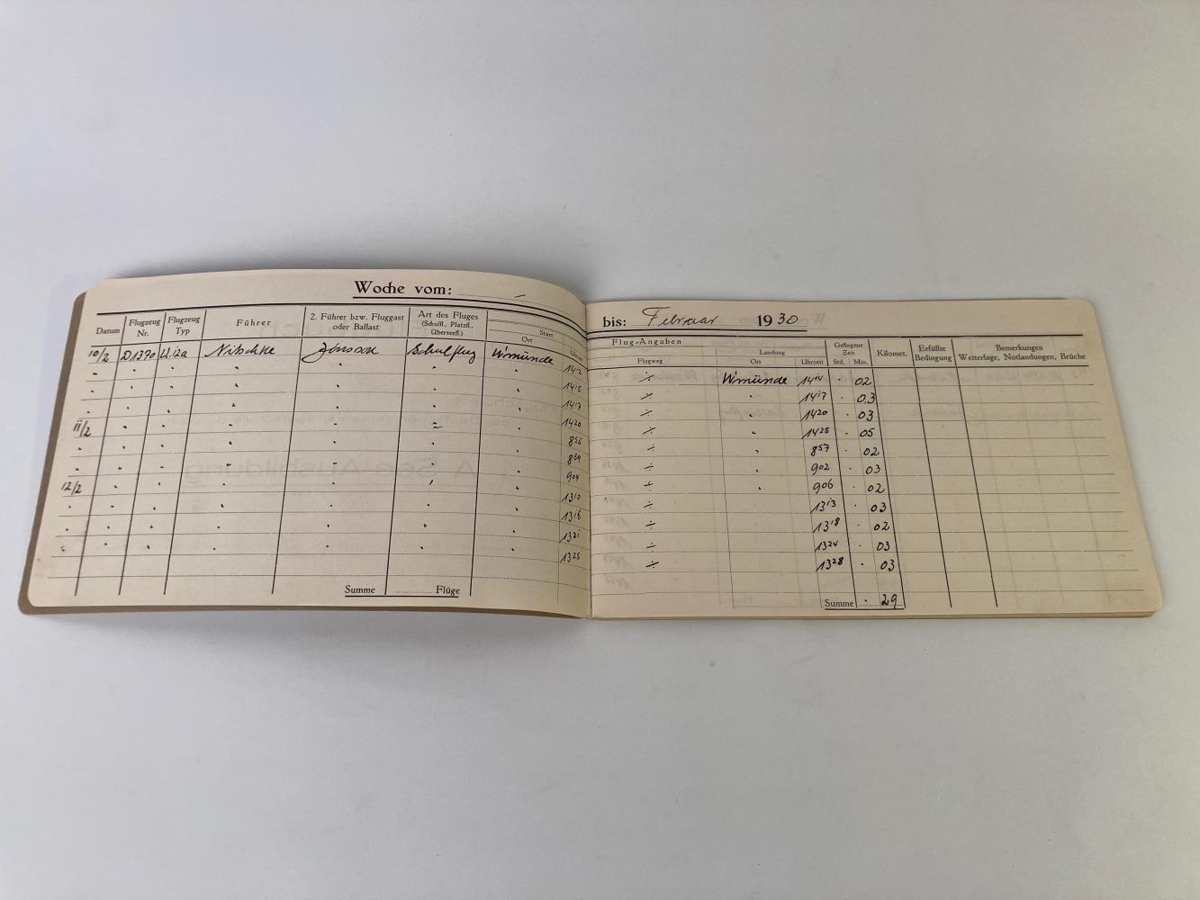 Woche vom:
bis: Februar 1930
Datum Flugzeug Nr. Flugzeug Typ Führer 2. Führer bzw. Fluggast oder Ballast Art des Fluges (Schulfl., Platzfl., Überseefl.) Start Ort Uhrzeit
Flug-Angaben Flugweg Landung Ort Uhrzeit Geflogene Zeit Std. Min. Kilomet. Erfüllte Bedingung Bemerkungen Wetterlage, Notlandungen, Brüche
10/2 D1390 U12a Nitschke Schulflug W'münde 1412 ÷ W'münde 1414 · 02
" " " " " " " 1415 ÷ " 1417 · 03
" " " " " " " 1417 ÷ " 1420 · 03
" " " " " " " 1420 ÷ " 1425 · 05
11/2 " " " " " " 855 ÷ " 857 · 02
" " " " " " " 859 ÷ " 902 · 03
" " " " " " " 904 ÷ " 906 · 02
12/2 " " " " " " 1310 ÷ 1313 · 03
" " " " " " " 1316 ÷ 1318 · 02
" " " " " " " 1321 ÷ 1324 · 03
" " " " " " " 1325 ÷ 1328 · 03
Summe Flüge
Summe · 29